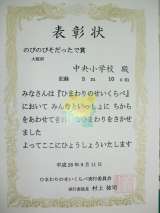 表彰状
のびのびそだったで賞
大阪府
中央小学校 殿
記録 3m 10cm
みなさんは『ひまわりのせいくらべ』
において みんなといっしょに ちから
をあわせて ひまわりをさかせました
よってここにひょうしょういたします
平成 年9月11日
ひまわりのせいくらべ実行委員会
実行委員長 村上